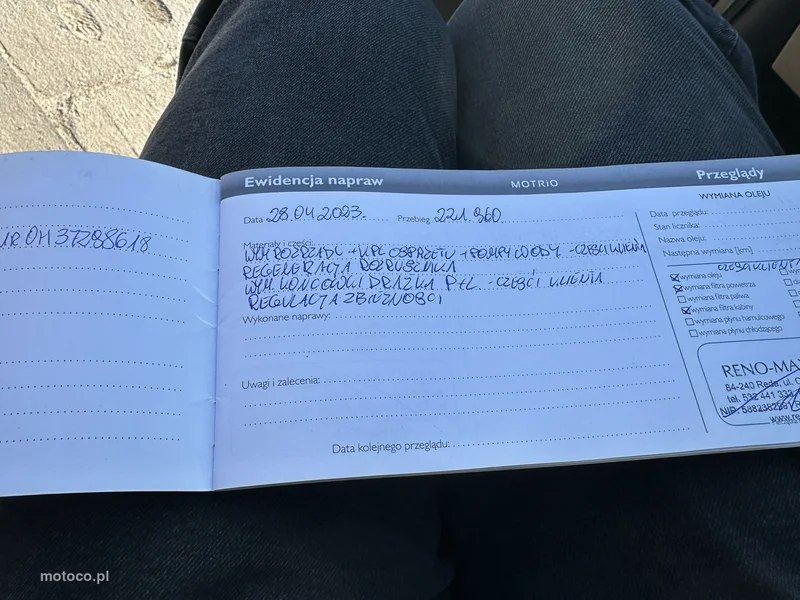 Ewidencja napraw MOTRIO Przeglądy
WYMIANA OLEJU
Data 28.04.2023. Przebieg 221.360.
Materiały i części:
WYM ROZRZĄDU + KPL OSPRZĘTU + POMPY WODY - CZĘŚCI KLIENTA
REGENERACJA ROZRUSZNIKA
WYM. KOŃCÓWKI DRĄŻKA P+L. - CZĘŚCI KLIENTA
REGULACJA ZBIEŻNOŚCI
Wykonane naprawy:
Uwagi i zalecenia:
Data kolejnego przeglądu:
Data przeglądu:
Stan licznika:
Nazwa oleju:
Następna wymiana [km]
CZĘŚCI KLIENTA
wymiana oleju
wymiana filtra powietrza
wymiana filtra paliwa
wymiana filtra kabiny
wymiana płynu hamulcowego
wymiana płynu chłodzącego
RENO-MA
84-240 Reda, ul.
tel. 532 441 332
NIP:
motoco.pl